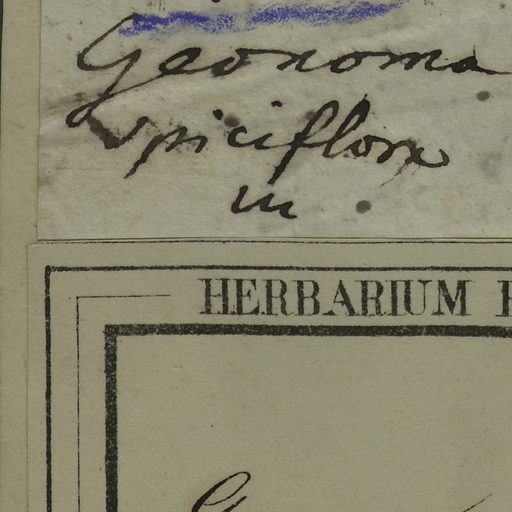 Geonoma
spiciflora
m
HERBARIUM